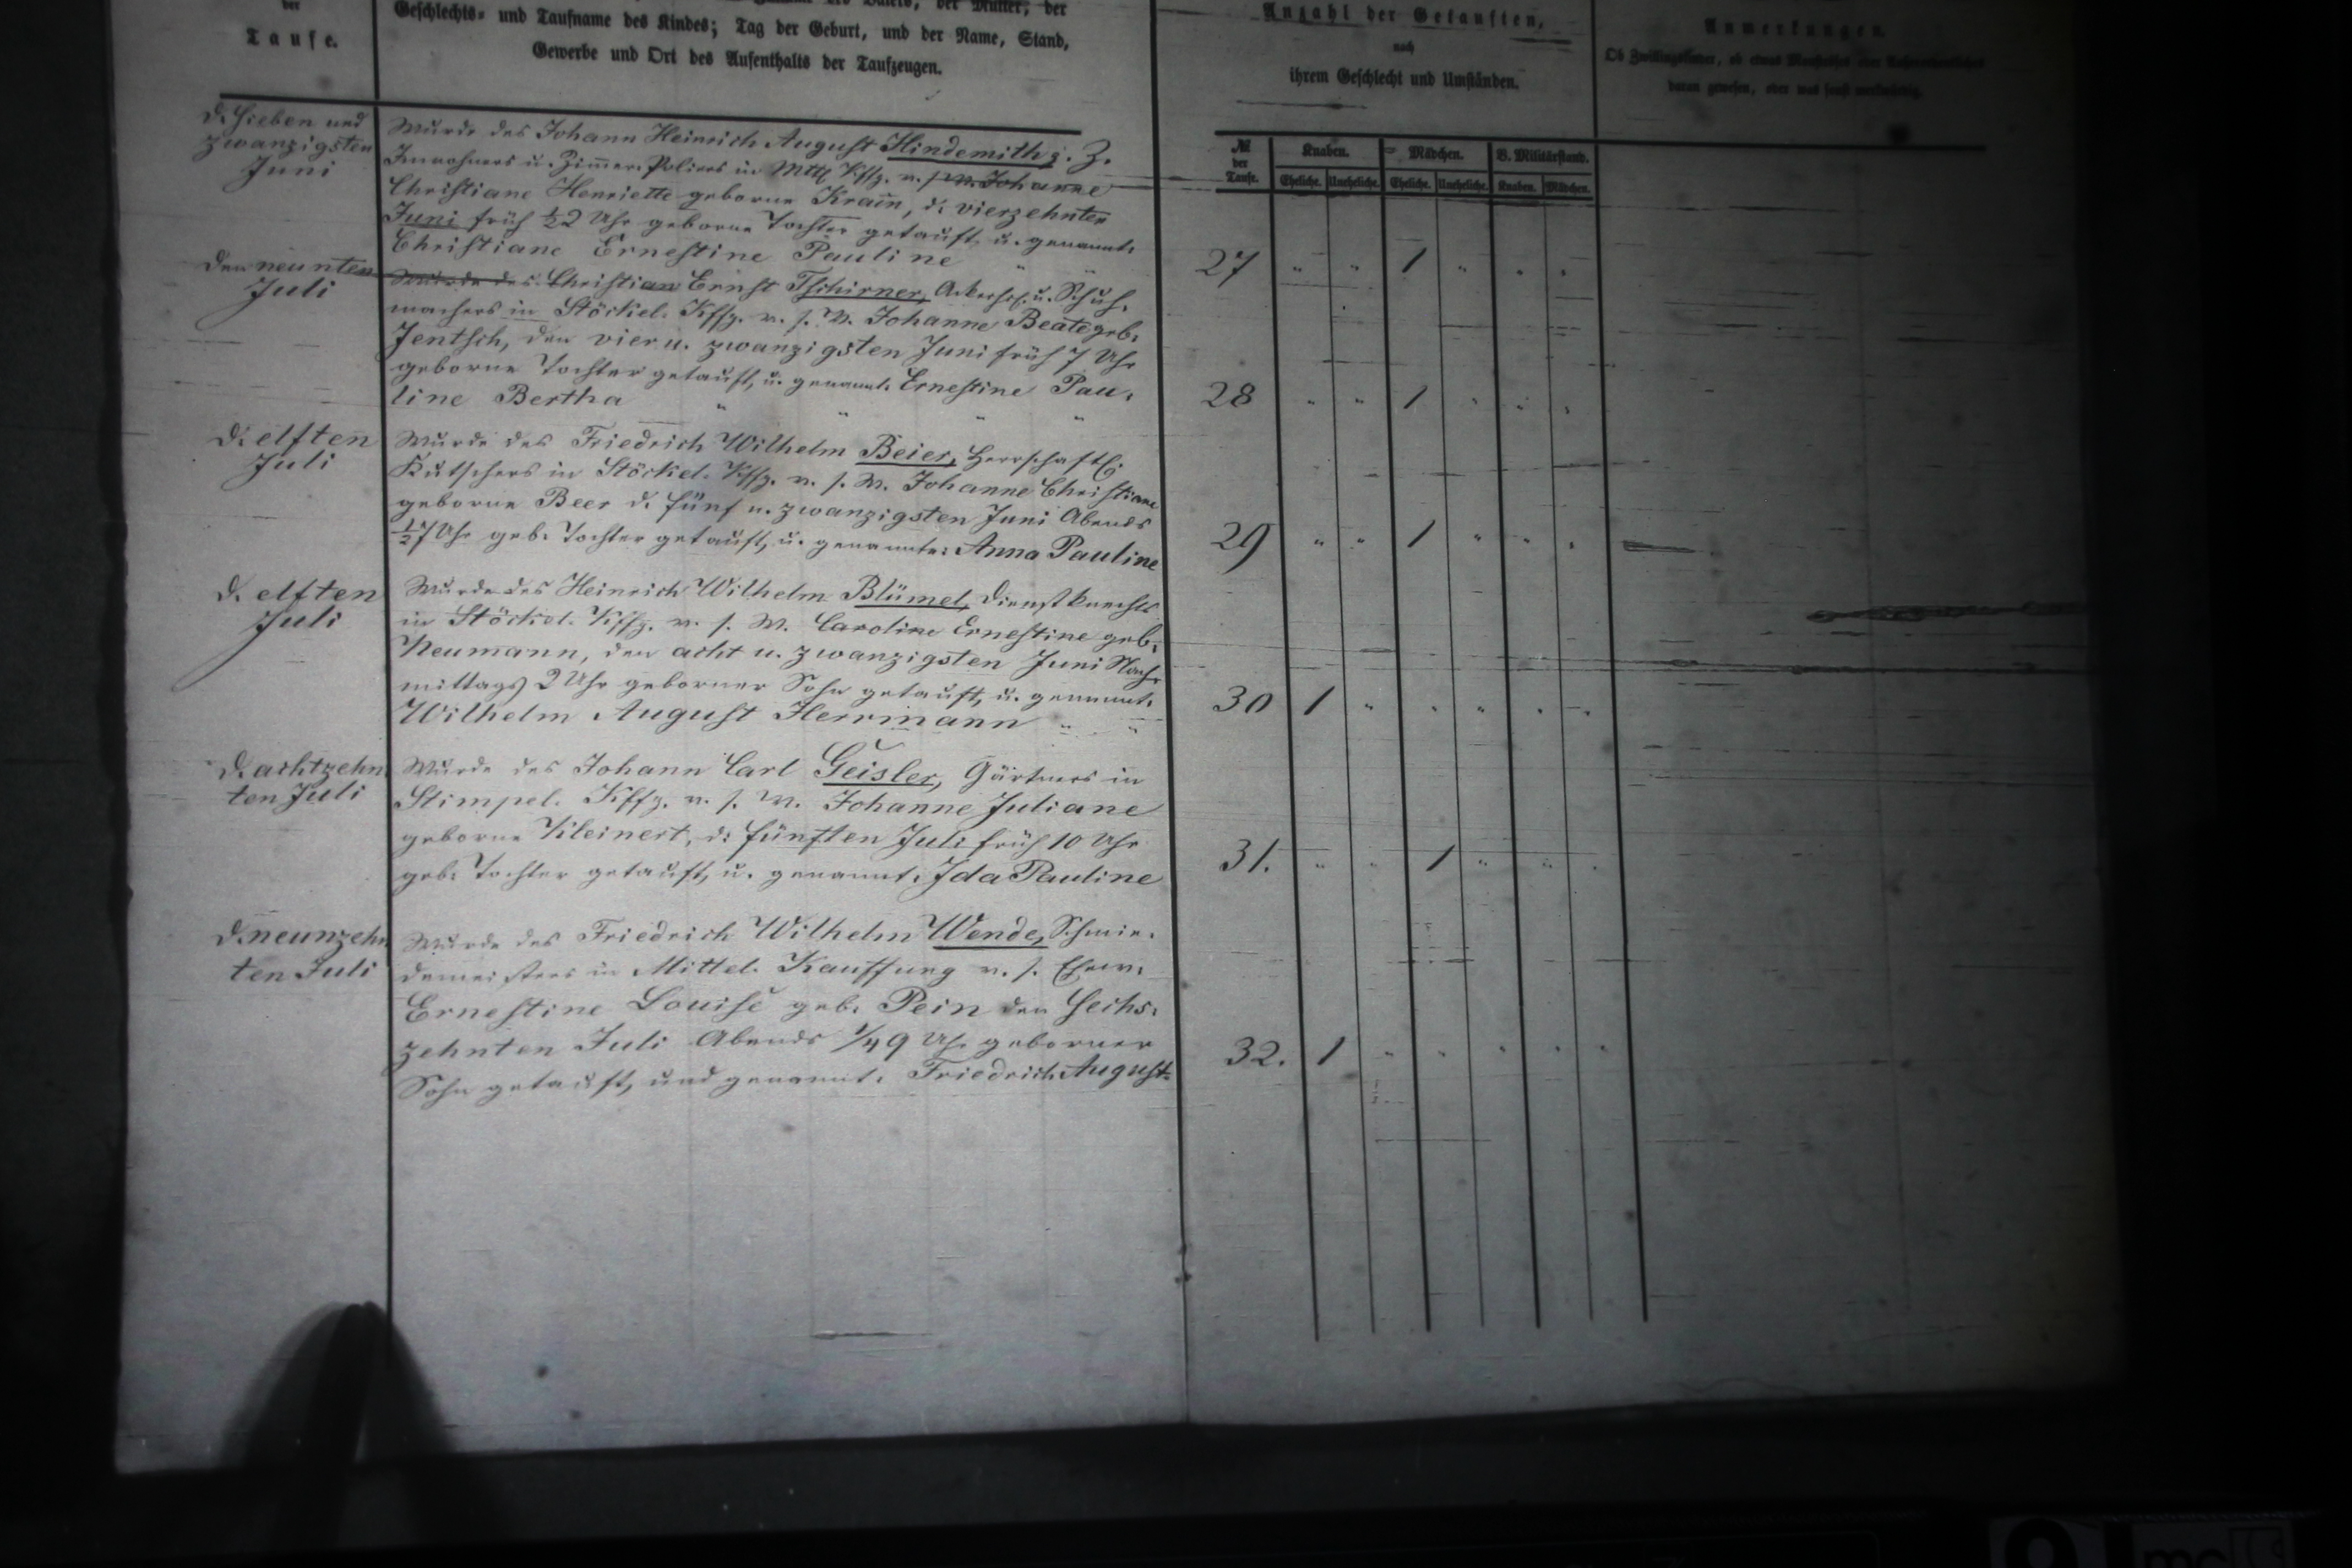 der
Taufe.
Geschlechts- und Taufname des Kindes; Tag der Geburt, und der Name, Stand,
Gewerbe und Ort des Aufenthalts der Taufzeugen.
Anzahl der Getauften,
nach
ihrem Geschlecht und Umständen.
Anmerkungen.
Ob Zwillingskinder, ob etwas
daran gewesen, oder was sonst merkwürdig.
№ der Taufe.
Knaben. Mädchen. B. Militärstand.
Eheliche. Uneheliche. Eheliche. Uneheliche. Knaben. Mädchen.
d. Sieben und
zwanzigsten
Juni
Wurde des Johann Heinrich August Hindemith, z. Z.
Inwohners u. Zimmer-Poliers in Mttl Kffg. u. s. W. Johanne
Christiane Henriette geborne Kram̄, d. vierzehnten
Juni früh ½2 Uhr geborne Tochter getauft, u. genannt:
Christiane Ernestine Pauline
27 " " 1 " " "
Den neunten
Juli
Wurde des Christian Ernst Tschirner, Ackerhsl. u. Schuh-
machers in Stöckel-Kffg. u. s. W. Johanne Beate geb.
Jentsch, den vier u. zwanzigsten Juni früh 7 Uhr
geborne Tochter getauft, u. genannt: Ernestine Pau-
line Bertha " " " "
28 " " 1 " " "
D. elften
Juli
Wurde des Friedrich Wilhelm Beier, Herrschaftl.
Kutschers in Stöckel-Kffg. u. s. W. Johanne Christiane
geborne Beer d. fünf u. zwanzigsten Juni Abends
½7 Uhr geb. Tochter getauft, u. genannt: Anna Pauline
29 " " 1 " " "
D. elften
Juli
Wurde des Heinrich Wilhelm Blümel, Dienstknechts
in Stöckel-Kffg. u. s. W. Caroline Ernestine geb.
Neumann, den acht u. zwanzigsten Juni Nach-
mittags 2 Uhr geborner Sohn getauft, u. genannt:
Wilhelm August Herrmann " "
30 1 " " " " "
D. achtzehn
ten Juli
Wurde des Johann Carl Geisler, Gärtners in
Stimpel-Kffg. u. s. W. Johanne Juliane
geborne Kleinert, d. fünften Juli früh 10 Uhr
geb. Tochter getauft, u. genannt: Ida Pauline
31. " " 1 " " "
D. neunzehn
ten Juli
Wurde des Friedrich Wilhelm Wende, Schmie-
demeisters in Mittel-Kauffung u. s. Ehew.
Ernestine Louise geb. Pein den Sechs-
zehnten Juli Abends ¼9 Uhr geborner
Sohn getauft, und genannt: Friedrich August.
32. 1 " " " " "